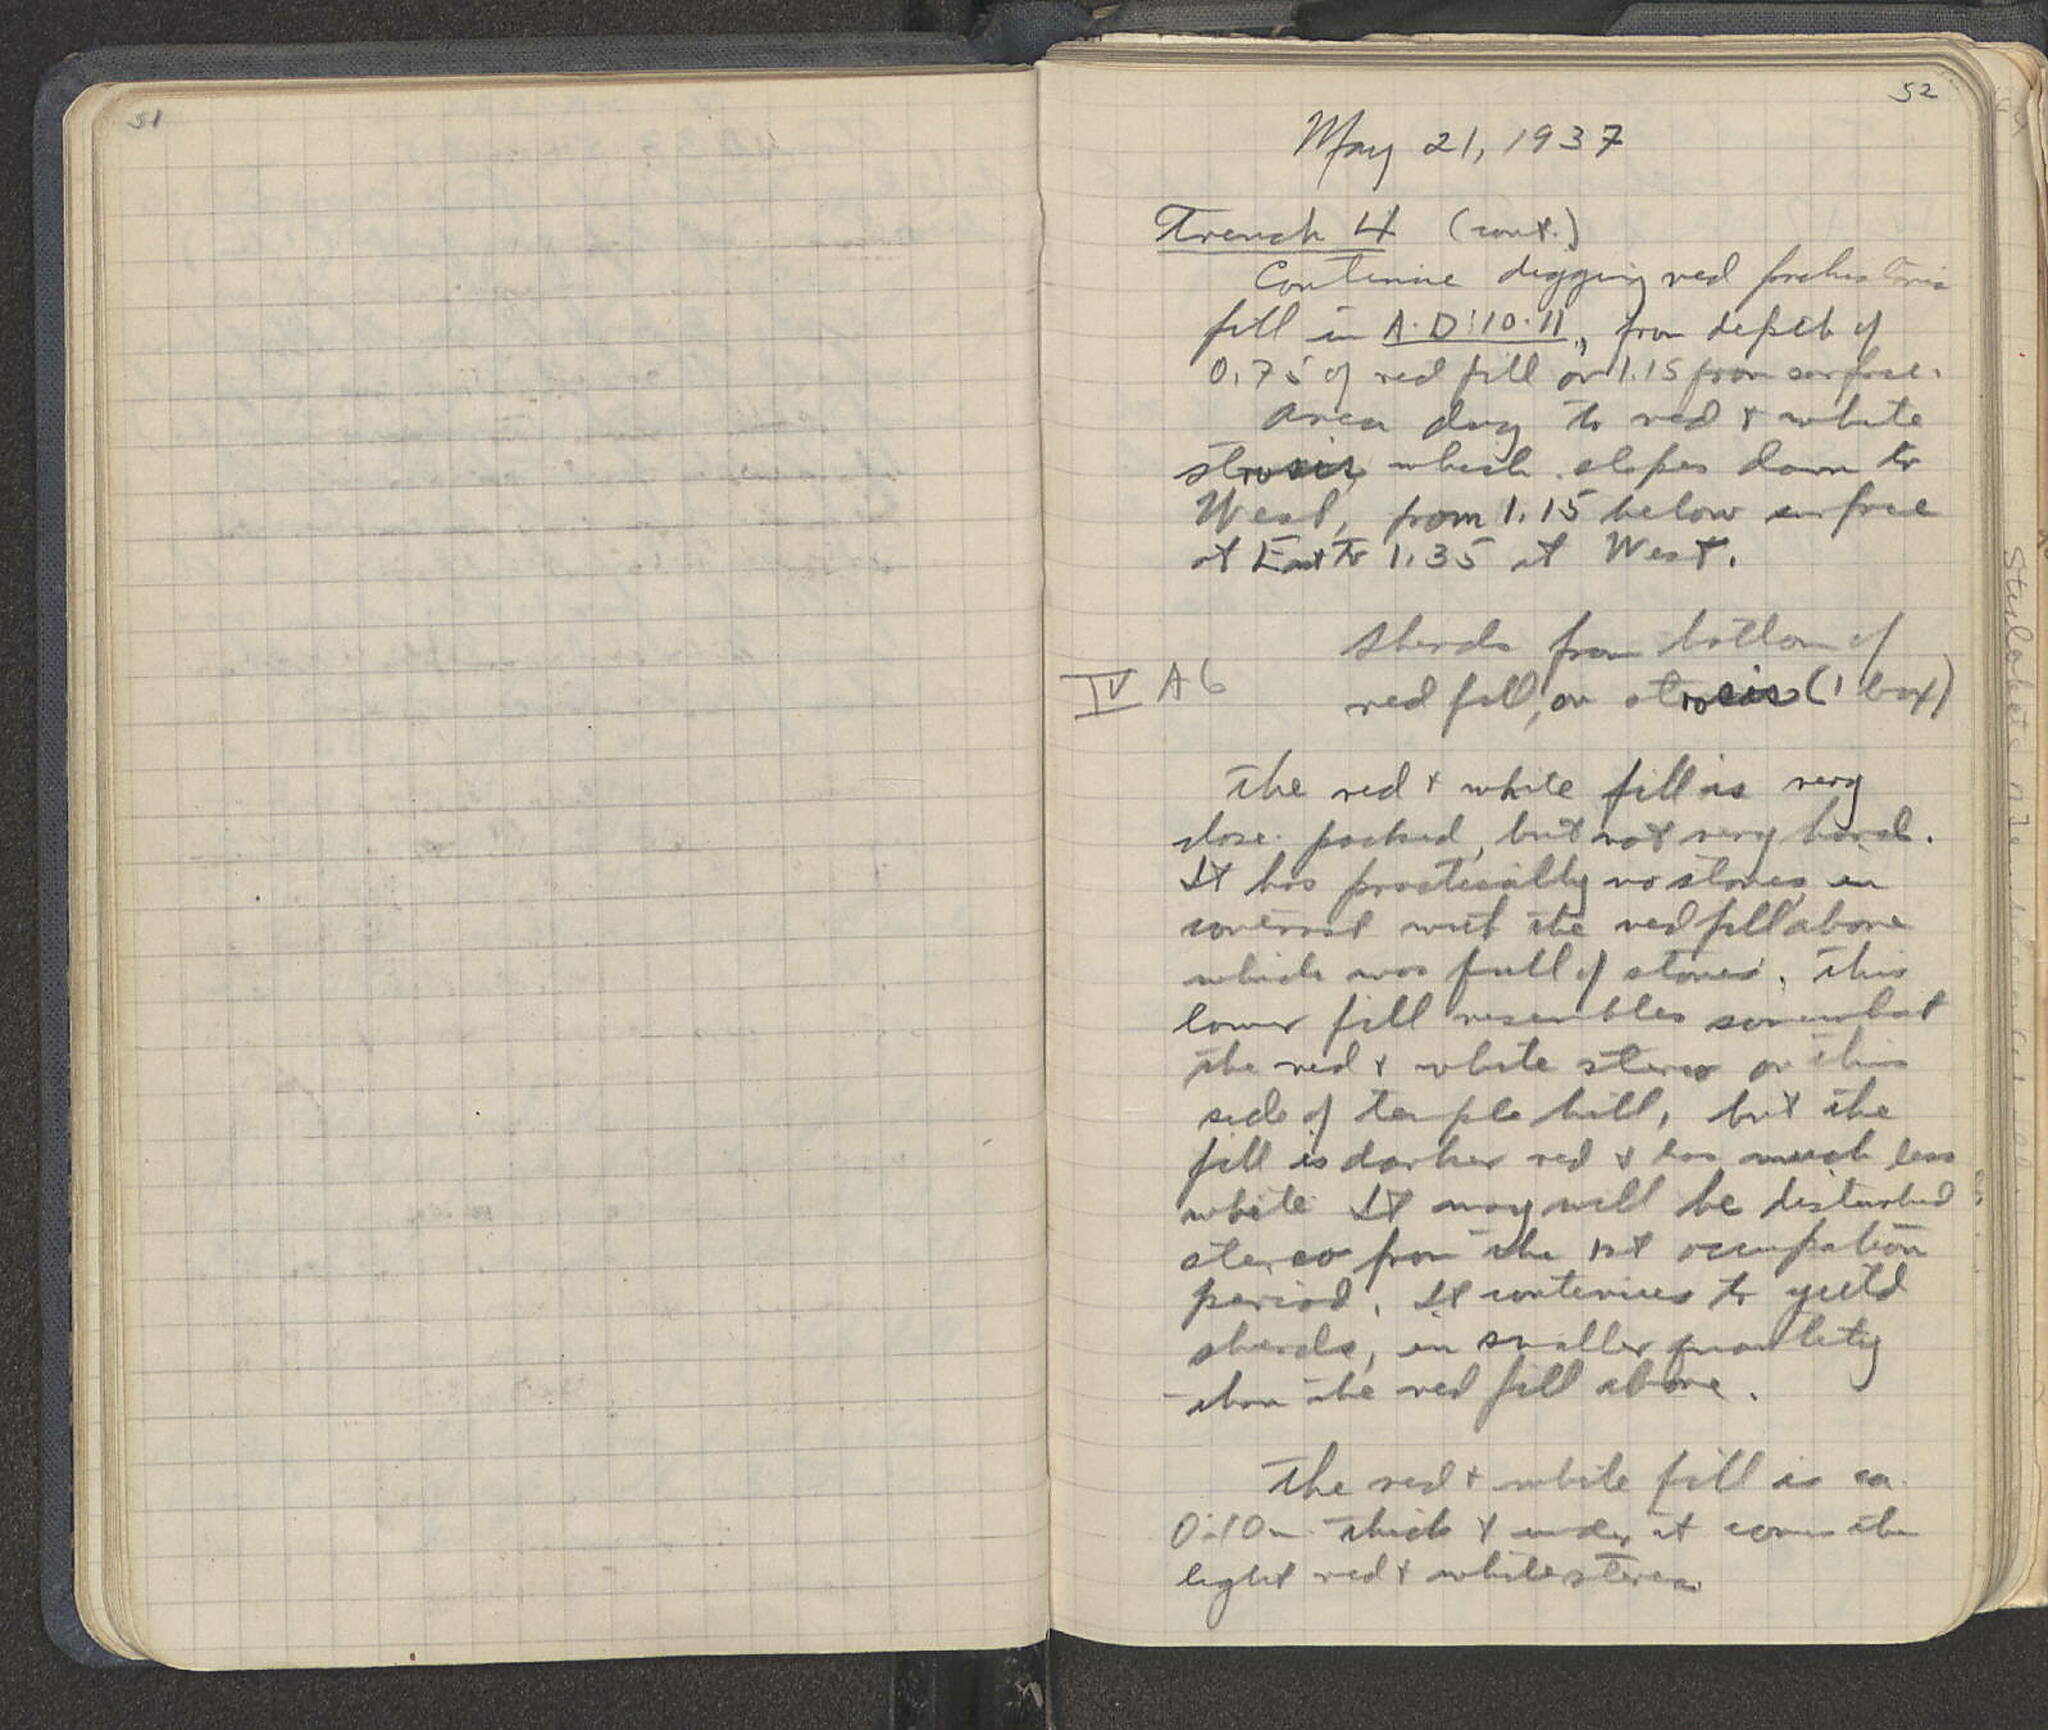 51
52
May 21, 1937
Trench 4 (cont.)
Continue digging red prehistoric
fill in A-D:10-11, from depth of
0.75 of red fill or 1.15 from surface.
Area dug to red & white
strosis, which slopes down to
West, from 1.15 below surface
at East to 1.35 at West.
Sherds from bottom of
IV A 6 red fill, on strosis (1 box)
The red & white fill is very
close packed, but not very hard.
It has practically no stones, in
contrast with the red fill above
which was full of stones. This
lower fill resembles somewhat
the red & white stereo on this
side of temple hill, but the
fill is darker red & has much less
white. It may well be disturbed
stereo from the 1st occupation
period. It continues to yield
sherds, in smaller quantity
than the red fill above.
The red & white fill is ca.
0.10m thick & under it comes the
light red & white stereo